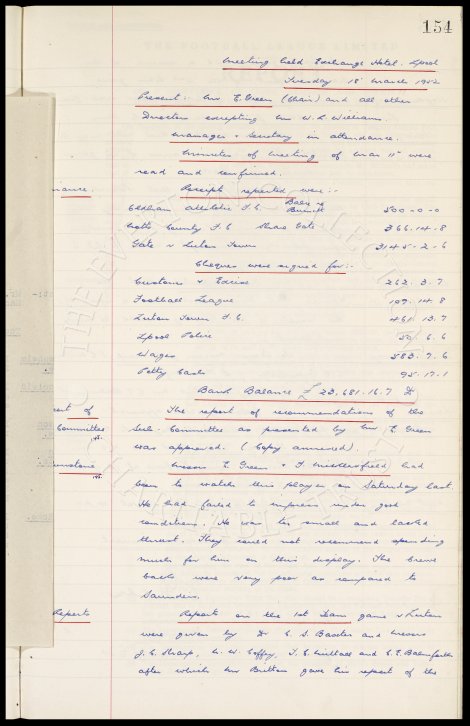 154
THE FOOTBALL LEAGUE LIMITED
Meeting held Exchange Hotel. Lpool
Tuesday 18 March 1952
Present: Mr E. Green (Chair) and all other
Directors excepting Mr W. R. Williams.
Manager & Secretary in attendance.
Minutes of meeting of Mar 11th were
read and confirmed.
Receipts reported were:-
Oldham Athletic F.C. Burnett 500-0-0
Notts County F.C. Share Gate 366.14.8
Gate v Luton Town 3145-2-6
Cheques were signed for:-
Customs & Excise 262.3.7
Football League 109.14.8
Luton Town F.C. 461.13.7
Lpool Police 6.6
Wages 583.9.6
Petty Cash 95.17.1
Bank Balance £ 23,681.16.7
The report of recommendations of the
Committee
Sel. Committee as presented by Mr E. Green
was approved. (Copy annexed).
Messrs E. Green & had
been to watch this player on Saturday last.
He had failed to impress under good
conditions. He was too small and lacked
thrust. They could not recommend spending
much for him on this display. The Crewe
backs were very poor as compared to
Saunders.
Reports
Reports on the 1st Team game v Luton
were given by Dr C. S. Baxter and Messrs
J. C. Sharp, W. W. Coffey, T. C. Nuttall and
after which Mr Britton gave his report of the